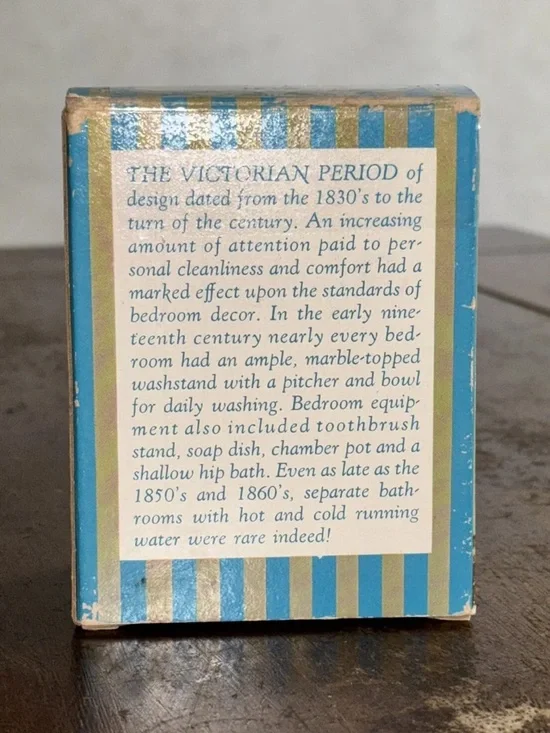 THE VICTORIAN PERIOD of
design dated from the 1830's to the
turn of the century. An increasing
amount of attention paid to per-
sonal cleanliness and comfort had a
marked effect upon the standards of
bedroom decor. In the early nine-
teenth century nearly every bed-
room had an ample, marble-topped
washstand with a pitcher and bowl
for daily washing. Bedroom equip-
ment also included toothbrush
stand, soap dish, chamber pot and a
shallow hip bath. Even as late as the
1850's and 1860's, separate bath-
rooms with hot and cold running
water were rare indeed!